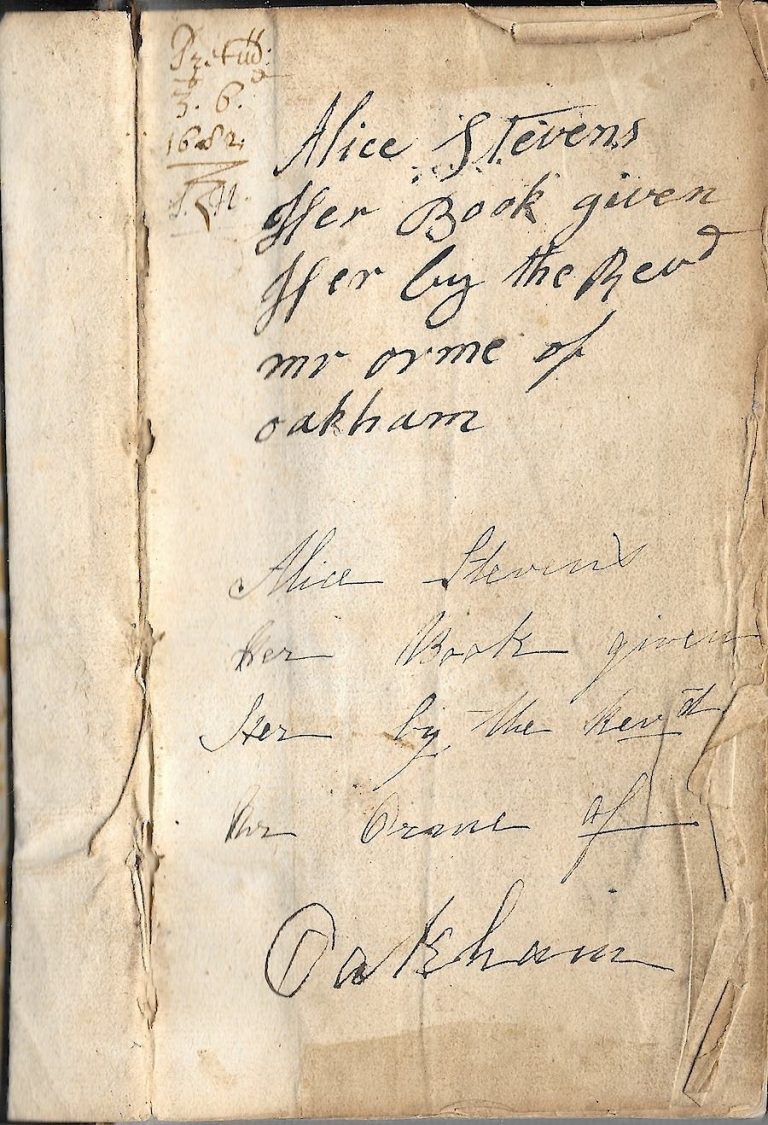 3. 6.
1682
Alice Stevens
Her Book given
Her by the Revd
mr orme of
oakham
Alice Stevens
her Book given
Her by the Revd
Orme of
Oakham